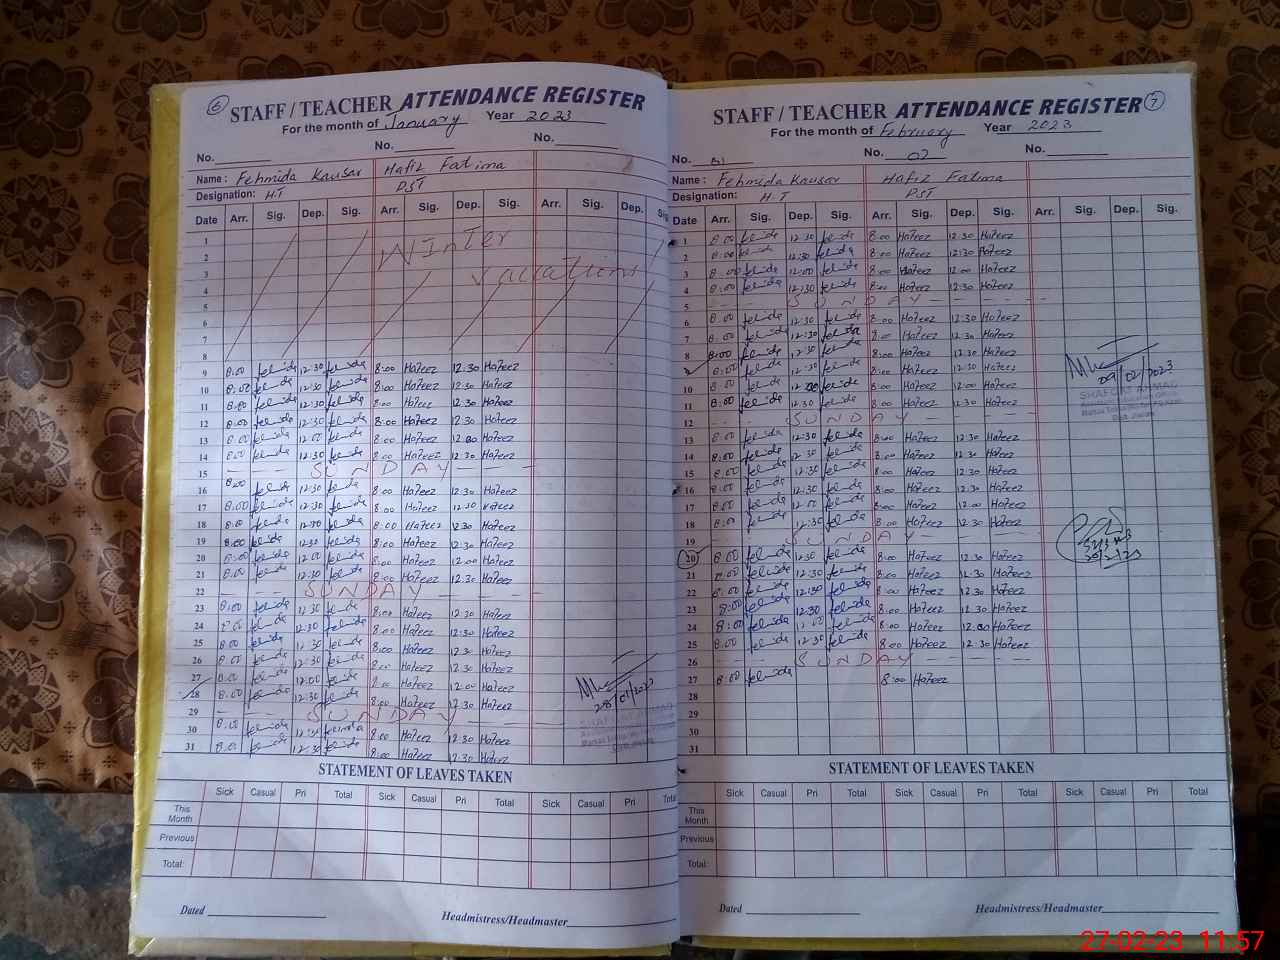 6
STAFF / TEACHER ATTENDANCE REGISTER
For the month of January Year 2023
No. No. No.
Name : Fehmida Kausar Hafiz Fatima
Designation: H.T PST
Date Arr. Sig. Dep. Sig. Arr. Sig. Dep. Sig. Arr. Sig. Dep. Sig
1
2
3
4
5
6
7
8
Winter Vacations
9 8:00 fehmida 12:30 fehmida 8:00 Hafeez 12:30 Hafeez
10 8:00 fehmida 12:30 fehmida 8:00 Hafeez 12:30 Hafeez
11 8:00 fehmida 12:30 fehmida 8:00 Hafeez 12:30 Hafeez
12 8:00 fehmida 12:30 fehmida 8:00 Hafeez 12:30 Hafeez
13 8:00 fehmida 12:00 fehmida 8:00 Hafeez 12:00 Hafeez
14 8:00 fehmida 12:30 fehmida 8:00 Hafeez 12:30 Hafeez
15 SUNDAY
16 8:00 fehmida 12:30 fehmida 8:00 Hafeez 12:30 Hafeez
17 8:00 fehmida 12:30 fehmida 8:00 Hafeez 12:30 Hafeez
18 8:00 fehmida fehmida 8:00 Hafeez 12:30 Hafeez
19 8:00 fehmida 12:30 fehmida 8:00 Hafeez 12:30 Hafeez
20 8:00 fehmida 12:00 fehmida 8:00 Hafeez 12:00 Hafeez
21 8:00 fehmida 12:30 fehmida 8:00 Hafeez 12:30 Hafeez
22 SUNDAY
23 8:00 fehmida 12:30 fehmida 8:00 Hafeez 12:30 Hafeez
24 8:00 fehmida 12:30 fehmida 8:00 Hafeez 12:30 Hafeez
25 8:00 fehmida 12:30 fehmida 8:00 Hafeez 12:30 Hafeez
26 8:00 fehmida 12:30 fehmida 8:00 Hafeez 12:30 Hafeez
27 8:00 fehmida 12:00 fehmida 8:00 Hafeez 12:00 Hafeez
28 8:00 fehmida 12:30 fehmida 8:00 Hafeez 12:30 Hafeez
28/01/2023
29 SUNDAY
30 8:00 fehmida 12:30 fehmida 8:00 Hafeez 12:30 Hafeez
31 8:00 fehmida 12:30 fehmida 8:00 Hafeez 12:30 Hafeez
STATEMENT OF LEAVES TAKEN
Sick Casual Pri Total Sick Casual Pri Total Sick Casual Pri Total
This Month
Previous
Total:
Dated Headmistress/Headmaster
7
STAFF / TEACHER ATTENDANCE REGISTER
For the month of February Year 2023
No. 01 No. 02 No.
Name : Fehmida Kausar Hafiz Fatima
Designation: H.T PST
Date Arr. Sig. Dep. Sig. Arr. Sig. Dep. Sig. Arr. Sig. Dep. Sig.
1 8:00 fehmida 12:30 fehmida 8:00 Hafeez 12:30 Hafeez
2 8:00 fehmida 12:30 fehmida 8:00 Hafeez 12:30 Hafeez
3 8:00 fehmida 12:00 fehmida 8:00 Hafeez 12:00 Hafeez
4 8:00 fehmida 12:30 fehmida 8:00 Hafeez 12:30 Hafeez
5 SUNDAY
6 8:00 fehmida 12:30 fehmida 8:00 Hafeez 12:30 Hafeez
7 8:00 fehmida 12:30 fehmida 8:00 Hafeez 12:30 Hafeez
8 8:00 fehmida 12:30 fehmida 8:00 Hafeez 12:30 Hafeez
9 8:00 fehmida 12:30 fehmida 8:00 Hafeez 12:30 Hafeez
09/02/2023
SHAFQAT AHMAD
10 8:00 fehmida 12:00 fehmida 8:00 Hafeez 12:00 Hafeez
11 8:00 fehmida 12:30 fehmida 8:00 Hafeez 12:30 Hafeez
12 SUNDAY
13 8:00 fehmida 12:30 fehmida 8:00 Hafeez 12:30 Hafeez
14 8:00 fehmida 12:30 fehmida 8:00 Hafeez 12:30 Hafeez
15 8:00 fehmida 12:30 fehmida 8:00 Hafeez 12:30 Hafeez
16 8:00 fehmida 12:30 fehmida 8:00 Hafeez 12:30 Hafeez
17 8:00 fehmida 12:00 fehmida 8:00 Hafeez 12:00 Hafeez
18 8:00 fehmida 12:30 fehmida 8:00 Hafeez 12:30 Hafeez
19 SUNDAY
20 8:00 fehmida 12:30 fehmida 8:00 Hafeez 12:30 Hafeez
21 8:00 fehmida 12:30 fehmida 8:00 Hafeez 12:30 Hafeez
22 8:00 fehmida 12:30 fehmida 8:00 Hafeez 12:30 Hafeez
23 8:00 fehmida 12:30 fehmida 8:00 Hafeez 12:30 Hafeez
24 8:00 fehmida 12:00 fehmida 8:00 Hafeez 12:00 Hafeez
25 8:00 fehmida 12:30 fehmida 8:00 Hafeez 12:30 Hafeez
26 SUNDAY
27 8:00 fehmida 8:00 Hafeez
28
29
30
31
STATEMENT OF LEAVES TAKEN
Sick Casual Pri Total Sick Casual Pri Total Sick Casual Pri Total
This Month
Previous
Total:
Dated Headmistress/Headmaster
27-02-23 11:57